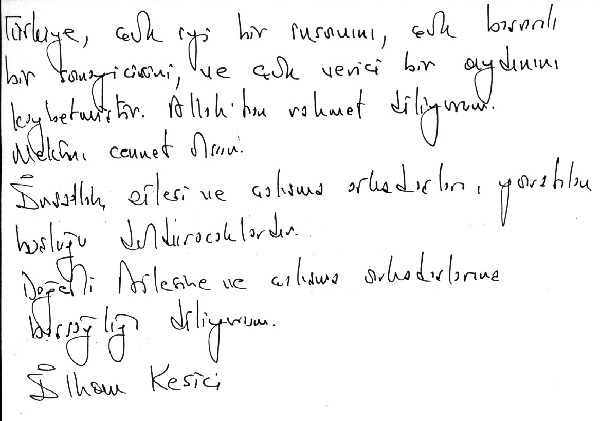 Türkiye, çok iyi bir insanını, çok başarılı
bir sanayicisini, ve çok verici bir aydınını
kaybetmiştir. Allah'tan rahmet diliyorum.
Mekânı cennet olsun.
İnşallah, ailesi ve çalışma arkadaşları, yaratılan
boşluğu dolduracaklardır.
Değerli Ailesine ve çalışma arkadaşlarına
başsağlığı diliyorum.
İlhan Kesici